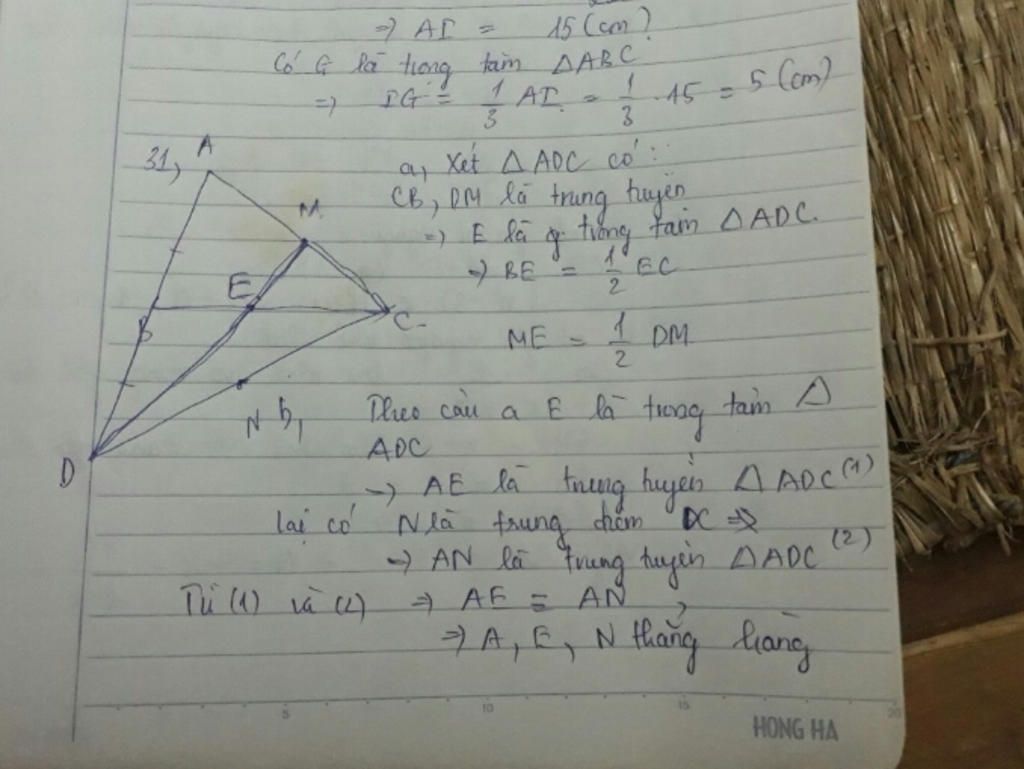 => AI = 15 (cm)
Có G là trọng tâm ΔABC
=> IG = 1/3 AI = 1/3 . 15 = 5 (cm)
31,
A
M
E
B
C
N
D
a, Xét ΔADC có:
CB, DM là trung tuyến
=> E là trọng tâm ΔADC.
=> BE = 1/2 EC
ME = 1/2 DM
b, Theo câu a E là trọng tâm Δ
ADC
=> AE là trung tuyến ΔADC (1)
lại có N là trung điểm DC =>
=> AN là trung tuyến ΔADC (2)
Từ (1) và (2) => AE ≡ AN
=> A, E, N thẳng hàng
5 10 15 20
HONG HA